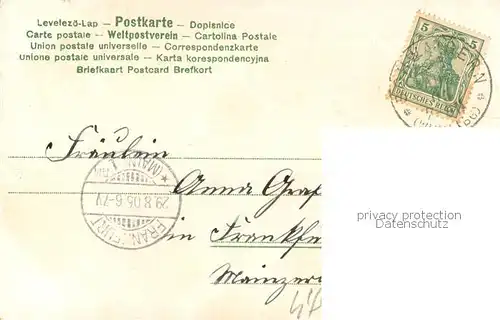 Levelező-Lap – Postkarte – Dopisnice
Carte postale – Weltpostverein – Cartolina Postale
Union postale universelle – Correspondenzkarte
Unione postale universale – Karta korespondencyjna
Briefkaart Postcard Brefkort
5 5
DEUTSCHES REICH
Fräulein
Anna Graf
in Frankf
Mainzer
FRANKFURT
29.8.05.6-7V
(MAIN)
privacy protection
Datenschutz